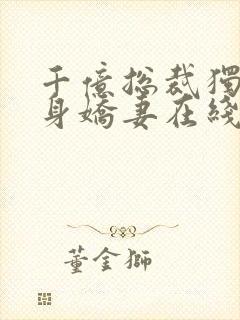 千億總裁獨
身嬌妻在綫
董金獅